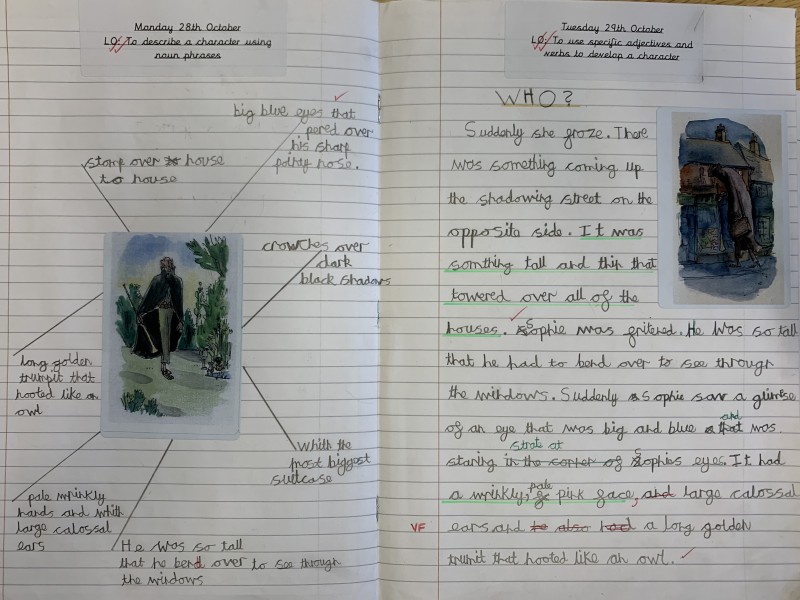 Monday 28th October
LO: To describe a character using
noun phrases
big blue eyes that
pered over
his sharp
pointy nose.
stomp over to house
to house
crowches over
dark
black shadows
long golden
trumpit that
hooted like an
owl
whith the
most biggest
suitcase
pale wrinkly
hands and whith
large calossal
ears
He was so tall
that he bend over to see through
the windows
Tuesday 29th October
LO: To use specific adjectives and
verbs to develop a character
WHO?
Suddenly she froze. There
was something coming up
the shadowing street on the
opposite side. It was
somthing tall and thin that
towered over all of the
houses. Sophie was gritered. He was so tall
that he had to bend over to see through
the windows. Suddenly Sophie saw a glimse
of an eye that was big and blue and that was
staring strate at in the corner of Sophies eyes. It had
a wrinkly, pale pink face, and large calossal
VF ears and he also had a long golden
trumit that hooted like an owl.